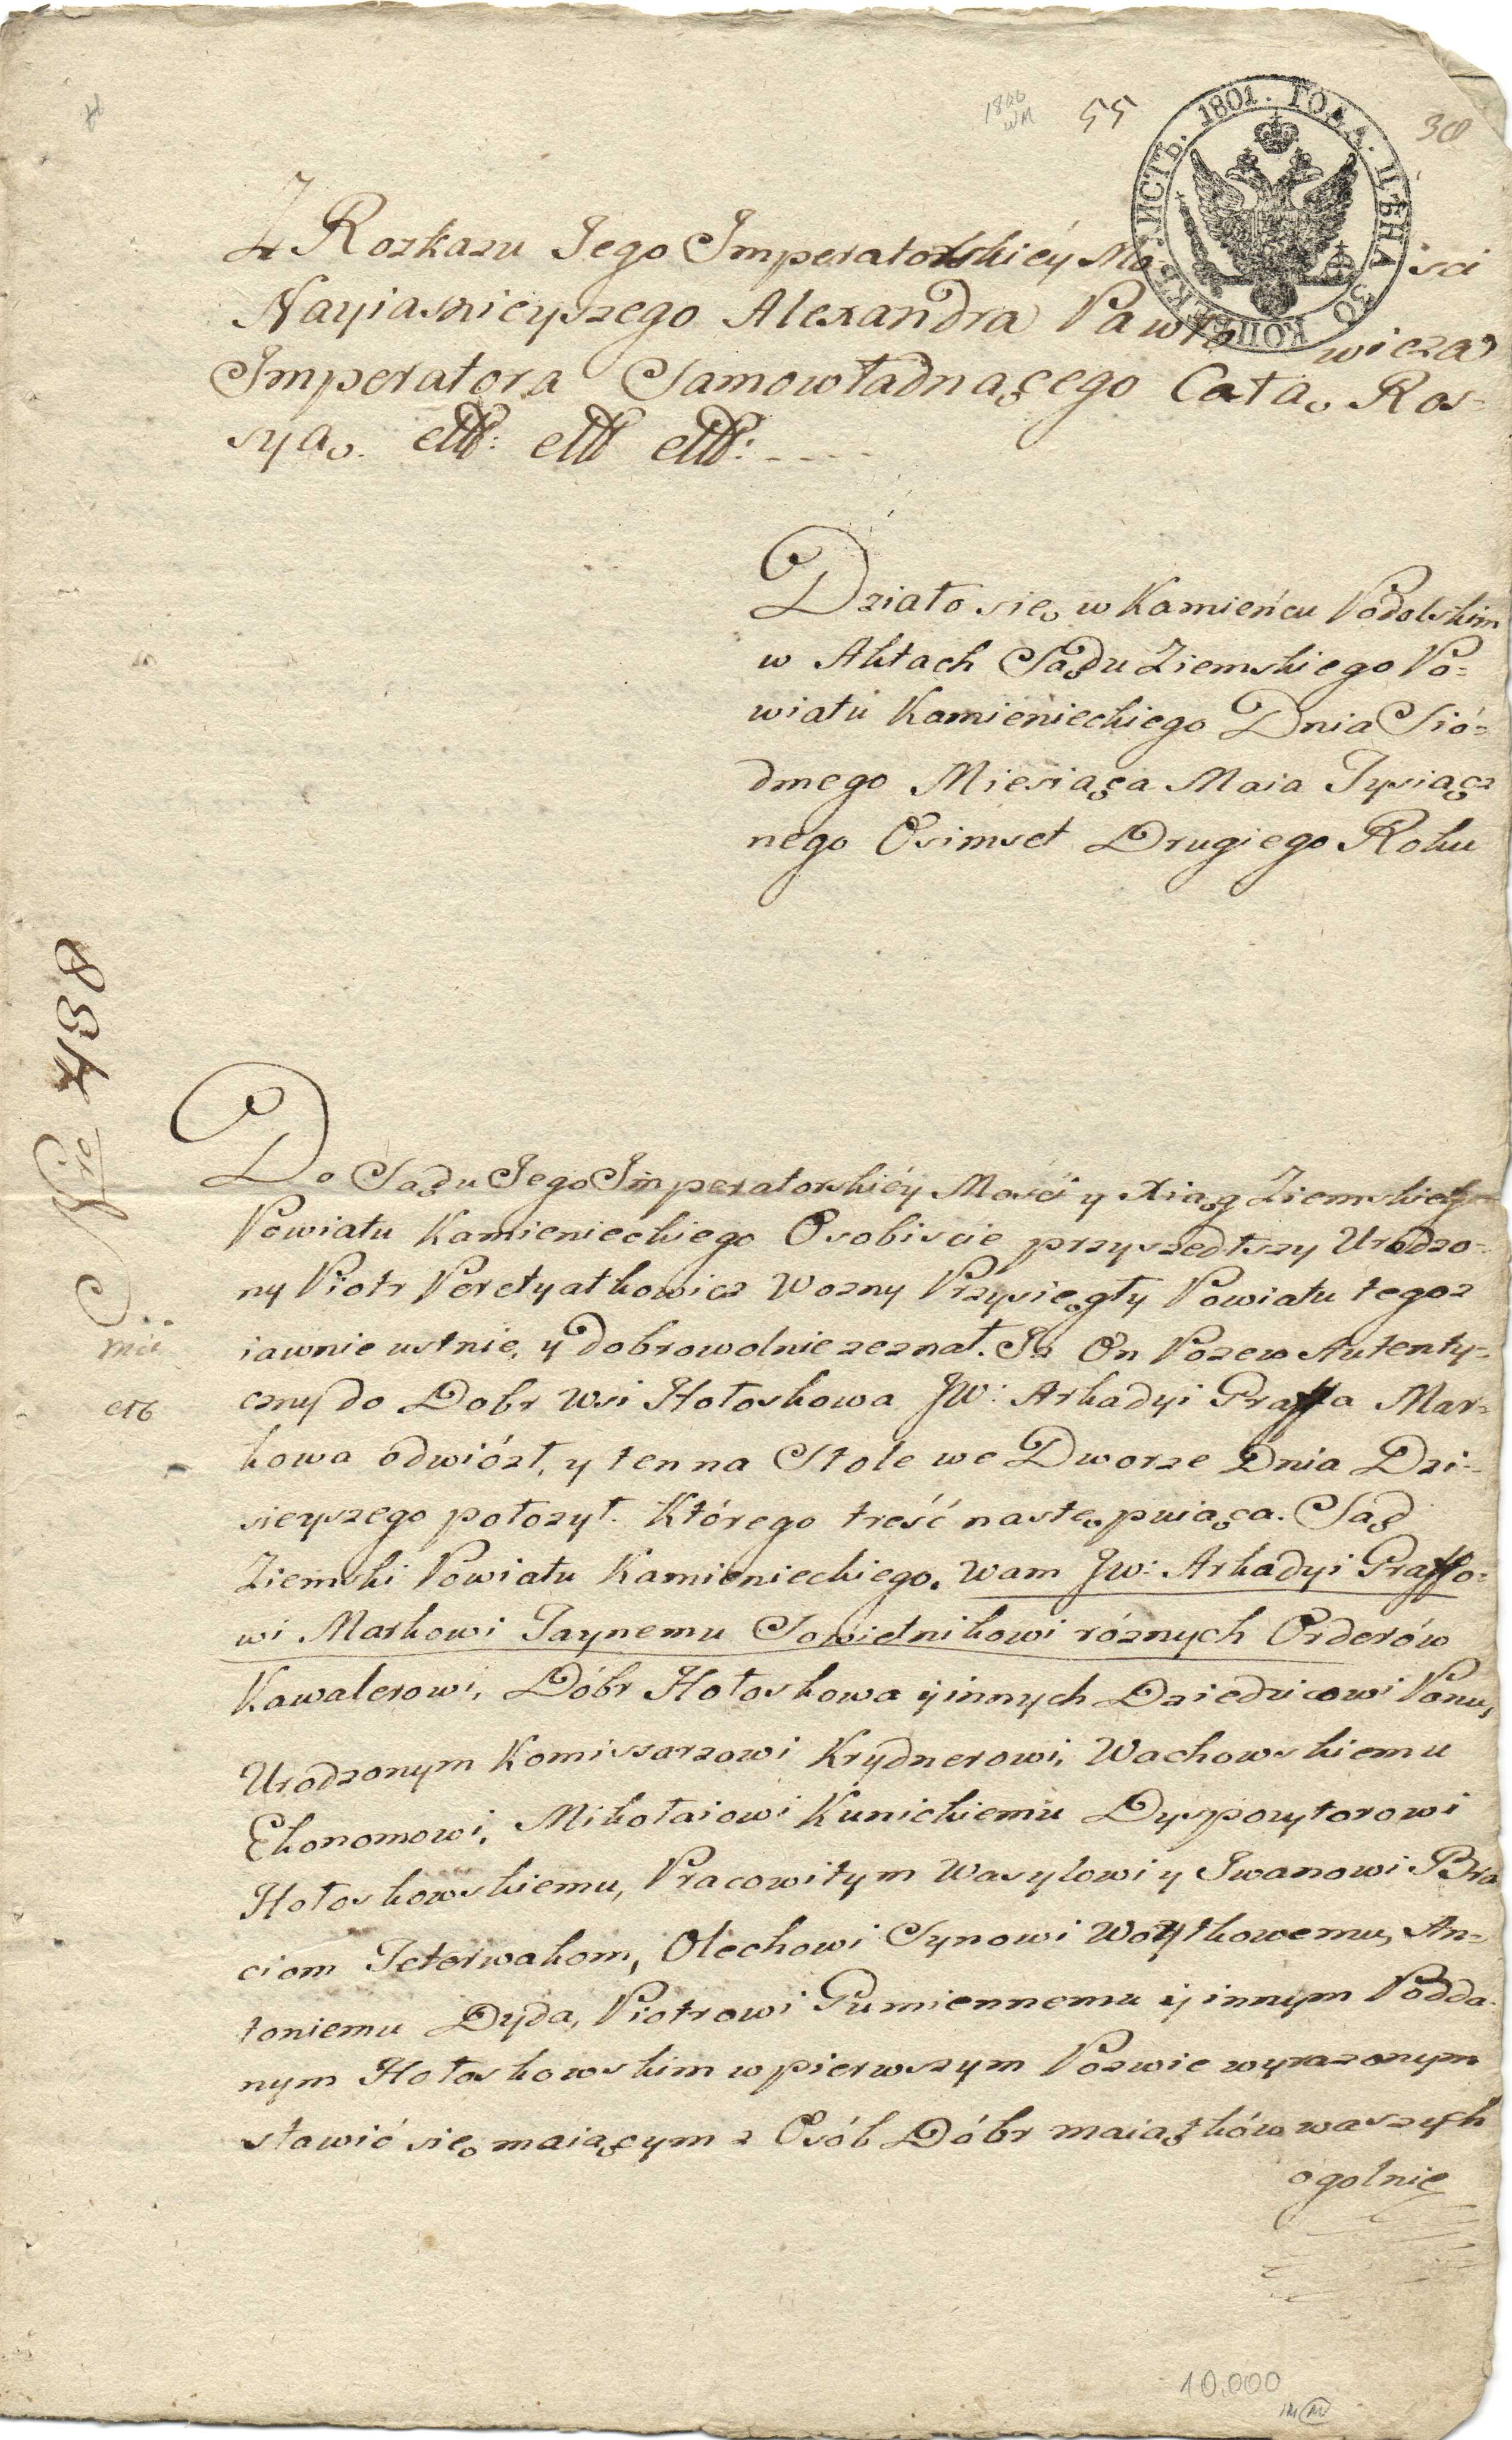 1800
WM
55
30
ЛИСТЬ. 1801. ГОДА. ЦѢНА 30 КОПѢЕКЪ.
Z Rozkazu Jego Imperatorskiéy Mo- isci
Nayiasnieyszego Alexandra Pawło wicza
Imperatora Samowładnącego Całą Ros-
syą. ettt: ettt ettt: - - - -
Działo się w Kamieńcu Podolskim
w Aktach Sądu Ziemskiego Po=
wiatu Kamienieckiego Dnia Sió=
dmego Miesiąca Maia Tysiącz
nego Osimset Drugiego Roku
Nro 438
Do Sądu Jego Imperatorskiéy Mości y Xiąg Ziemskich
Powiatu Kamienieckiego Osobiscie przyszedłszy Urodzo=
ny Piotr Peretyatkowicz Wozny Przysięgły Powiatu tegoz
iawnie ustnie, y dobrowolnie zeznał. Iz On Pozew Autenty=
mie
czny do Dobr Wsi Hołoskowa JW: Arkadyi Graffa Mar=
etb
kowa odwiózł, y ten na Stole we Dworze Dnia Dzi=
sieyszego połozył. Którego treść następuiąca. Sąd
Ziemski Powiatu Kamienieckiego. Wam JW: Arkadyi Graffo=
wi Markowi Taynemu Sowietnikowi róznych Orderów
Kawalerowi, Dóbr Hołoskowa y innych Dziedzicowi Panu,
Urodzonym Komissarzowi Krydnerowi, Wachowskiemu
Ekonomowi, Mikołaiowi Kunickiemu Dyspozytorowi
Hołoskowskiemu, Pracowitym Wasylowi y Iwanowi Bra
ciom Teterwakom, Olechowi Synowi Woytkowemu, An=
toniemu Dyda, Piotrowi Gumiennemu y innym Podda-
nym Hołoskowskim w pierwszym Pozwie wyrazonym
stawić się maiącym z Osób Dóbr maiątków waszych
ogolnie
10.000